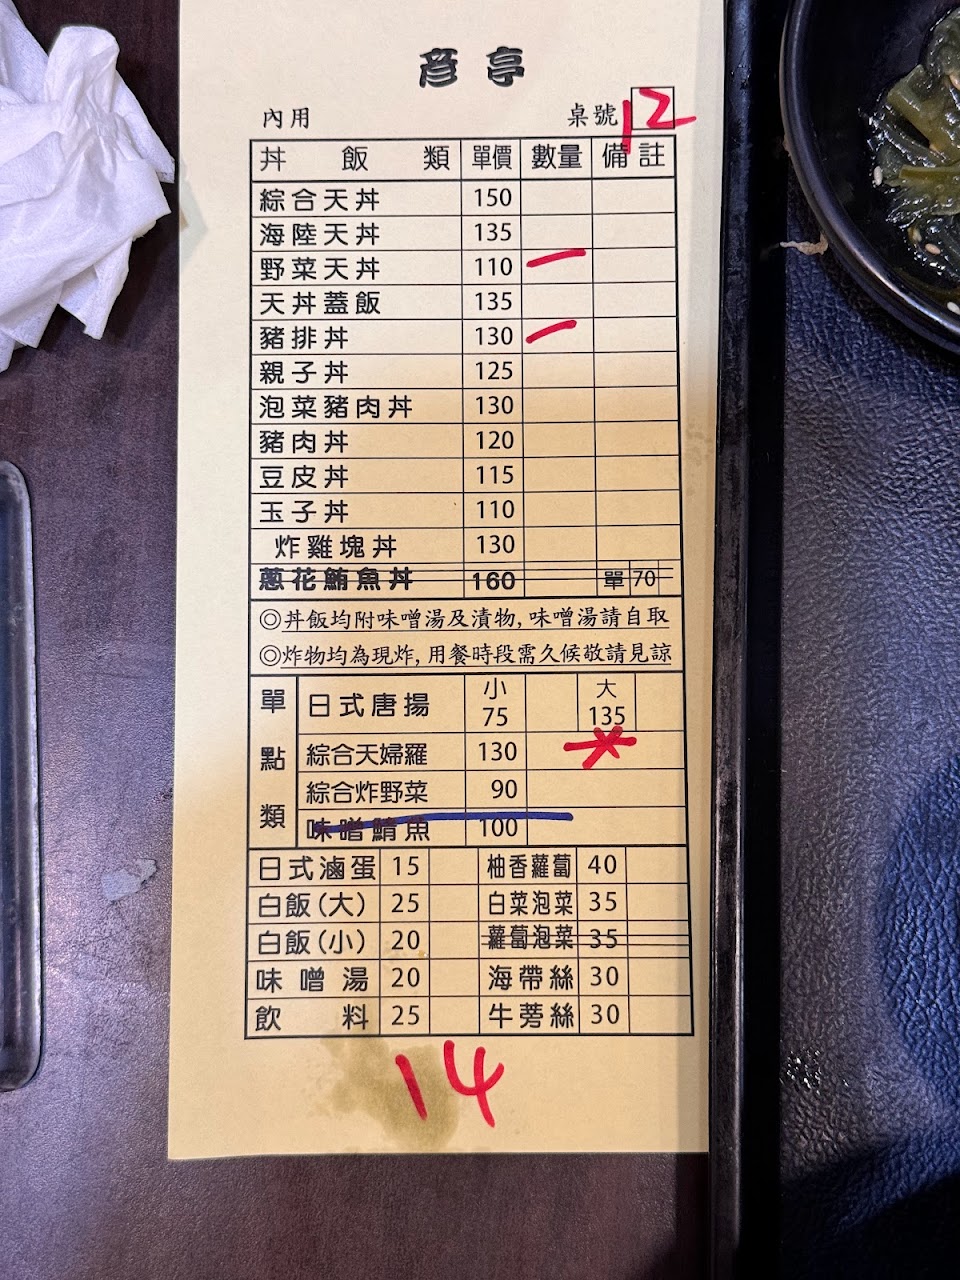 彥亭
內用 桌號 12
丼飯類 單價 數量 備註
綜合天丼 150
海陸天丼 135
野菜天丼 110 一
天丼蓋飯 135
豬排丼 130 一
親子丼 125
泡菜豬肉丼 130
豬肉丼 120
豆皮丼 115
玉子丼 110
炸雞塊丼 130
蔥花鮪魚丼 160 單 70
◎丼飯均附味噌湯及漬物,味噌湯請自取
◎炸物均為現炸,用餐時段需久候敬請見諒
單點類
日式唐揚 小 75 大 135
綜合天婦羅 130
綜合炸野菜 90
味噌鯖魚 100
日式滷蛋 15 柚香蘿蔔 40
白飯(大) 25 白菜泡菜 35
白飯(小) 20 蘿蔔泡菜 35
味噌湯 20 海帶絲 30
飲料 25 牛蒡絲 30
14